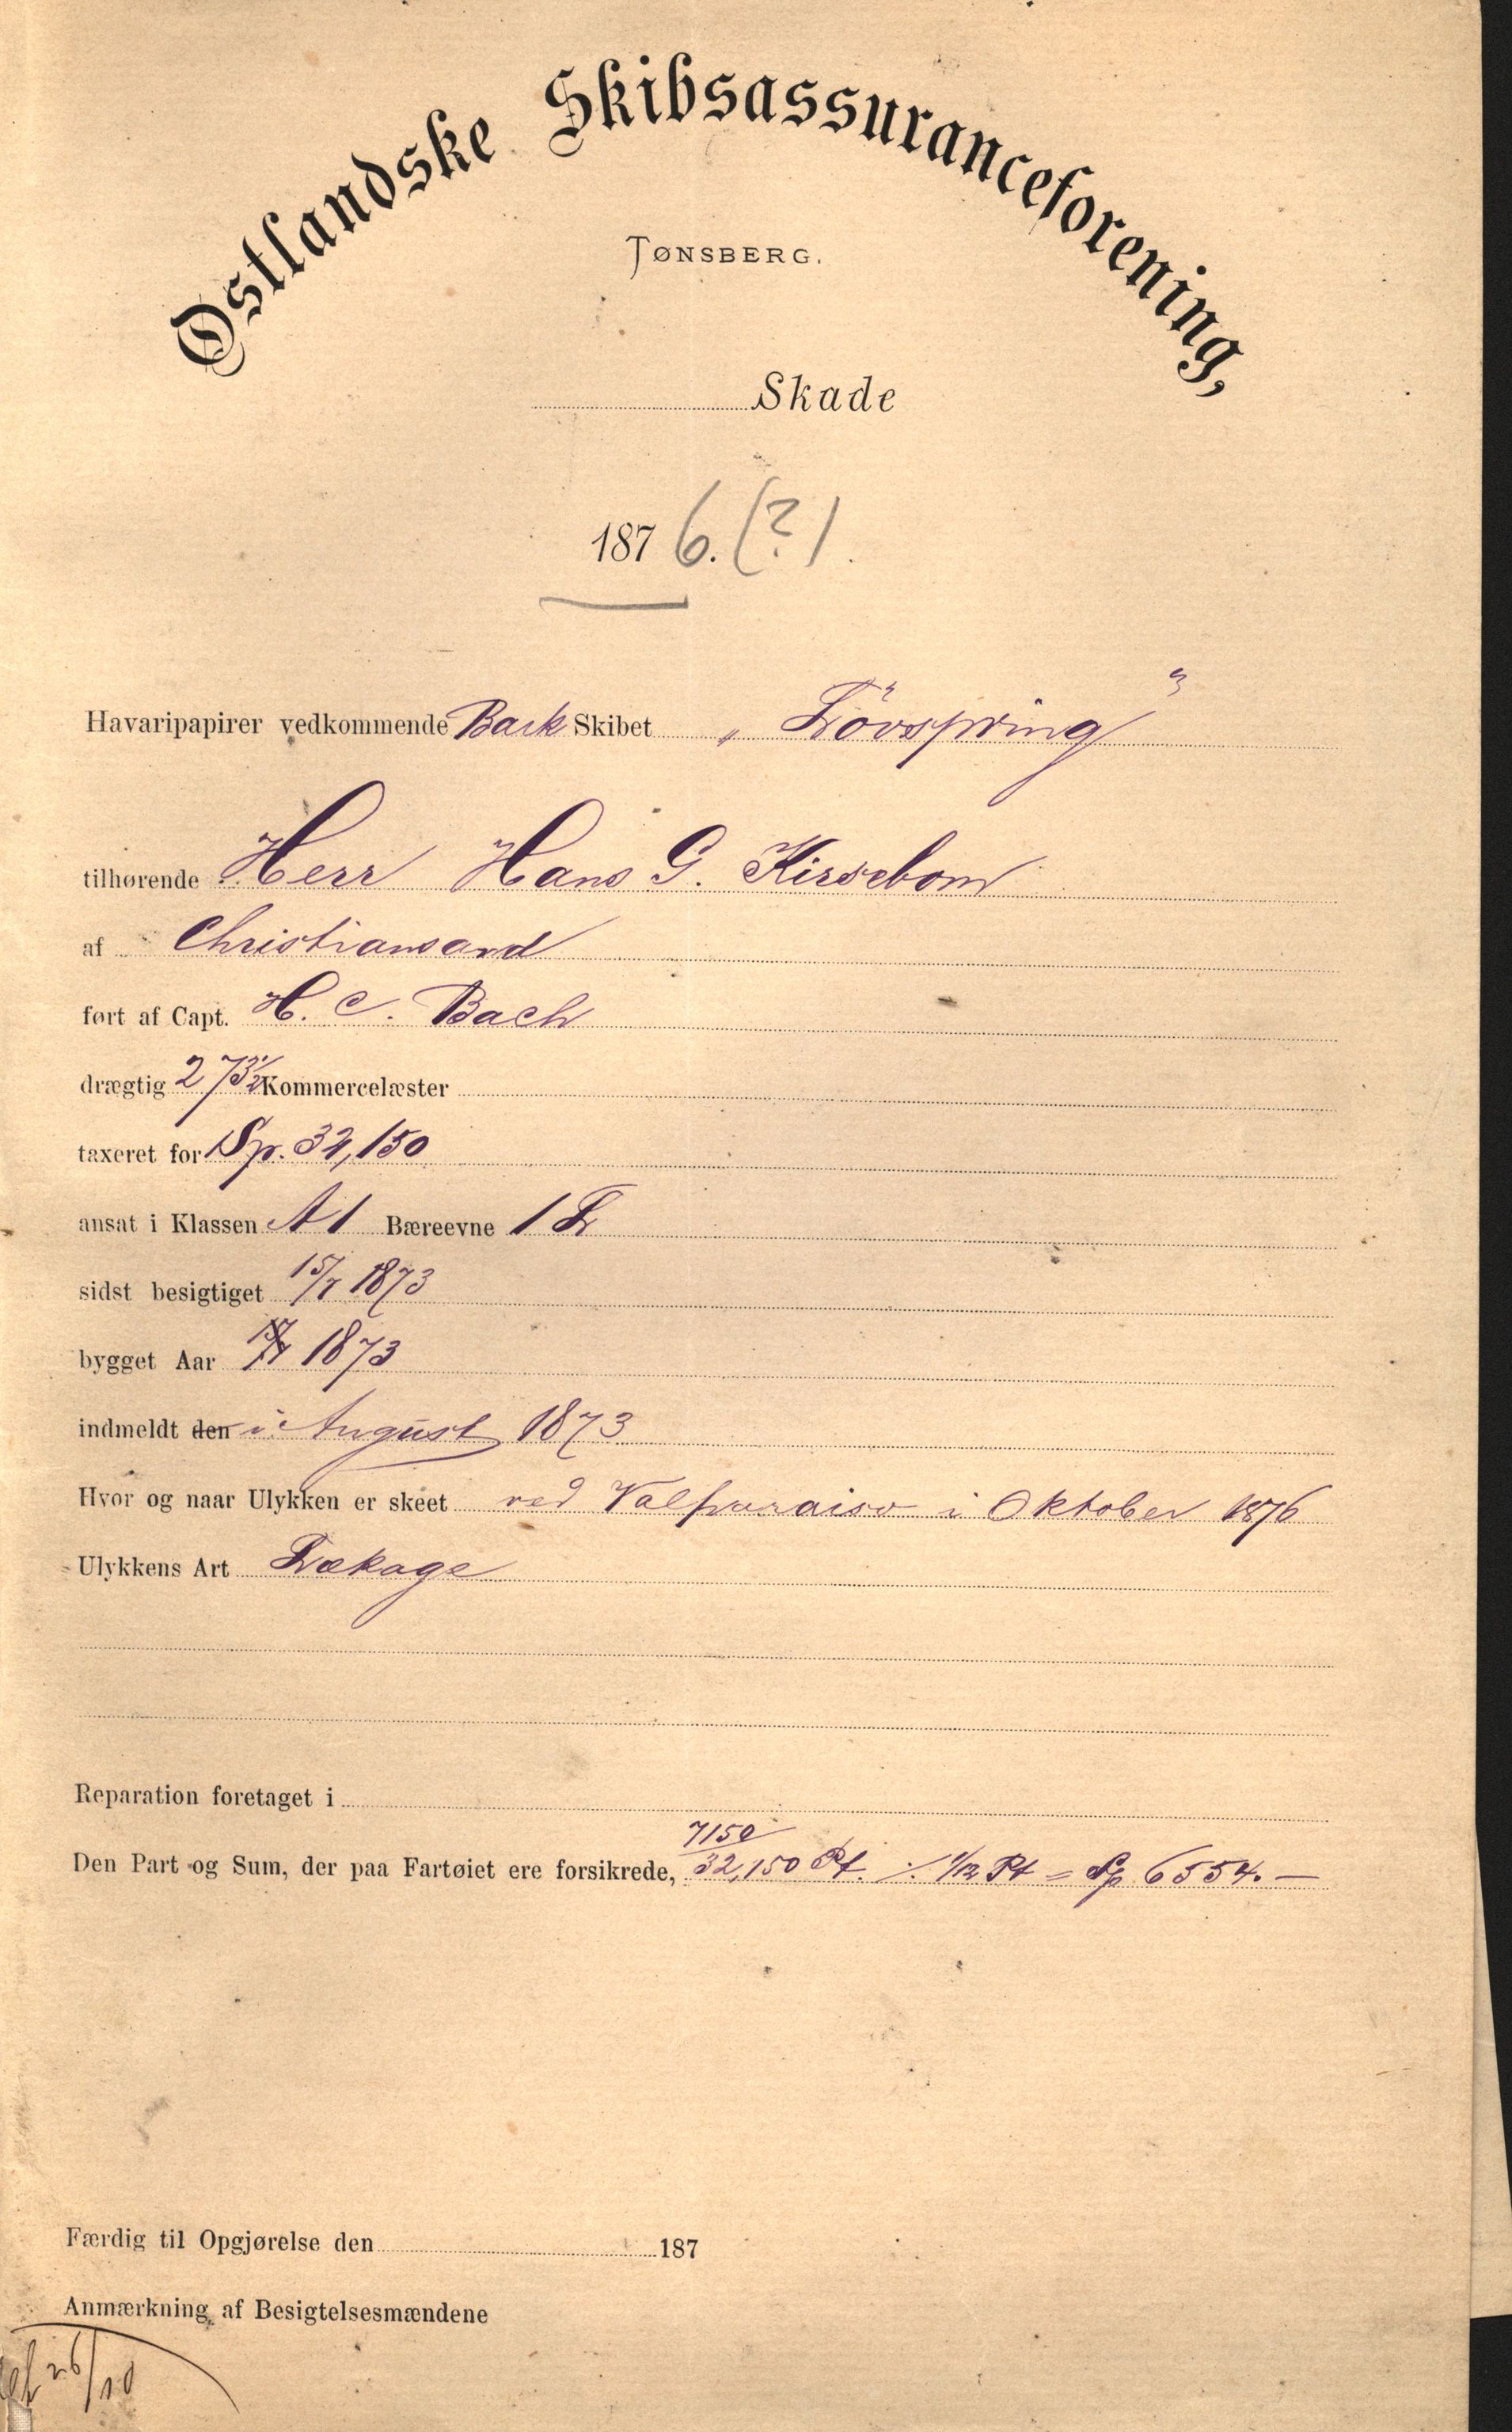 Østlandske Skibsassuranceforening,
TØNSBERG.
Skade
1876. (?)
Havaripapirer vedkommende Bark Skibet „Lövspring"
tilhørende Herr Hans G. Kirsebom
af Christiansand
ført af Capt. H. C. Bach
drægtig 273 1/2 Kommercelæster
taxeret for Sp. 32,150
ansat i Klassen A1 Bæreevne 1 L
sidst besigtiget 15/7 1873
bygget Aar 1873
indmeldt den i August 1873
Hvor og naar Ulykken er skeet ved Valparaiso i Oktober 1876
Ulykkens Art Lækage
Reparation foretaget i
Den Part og Sum, der paa Fartøiet ere forsikrede, 7150/32,150 Pt. ./. 1/12 Pt = Sp 6554.—
Færdig til Opgjørelse den 187
Anmærkning af Besigtelsesmændene
26/10